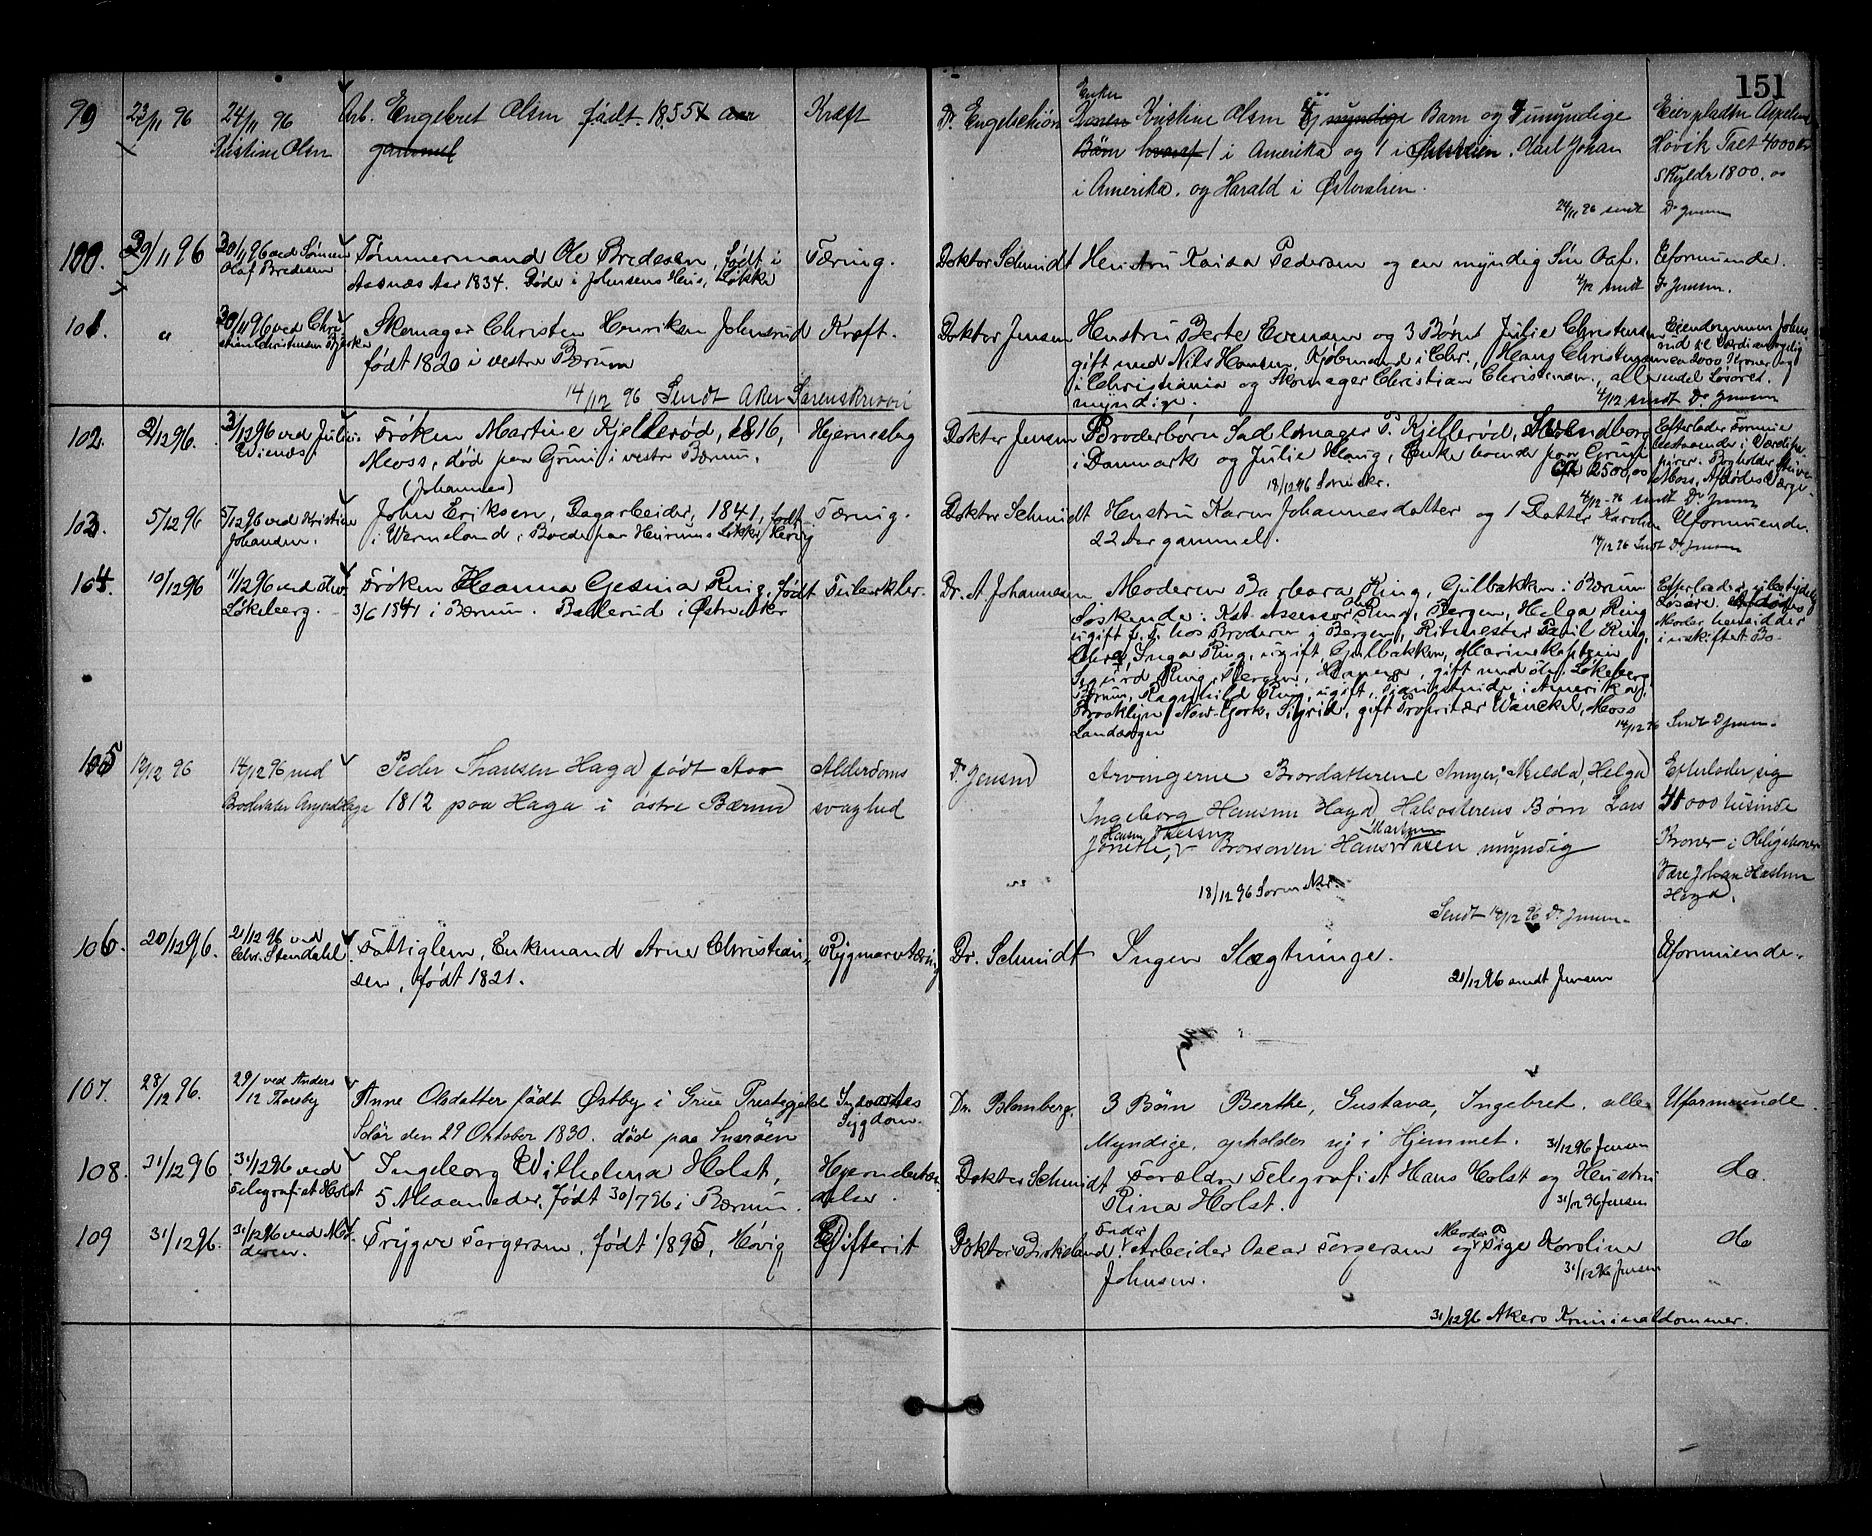 151
99 23/11 96 24/11 96 Arb. Engebret Olsen født 1855 Kræft Dr. Engelschiøn Enken Kristine Olsen myndige Barn og umyndige
Kristine Olsen gammel Børn hvoraf 1 i Amerika og 1 i Østerdalen. Karl Johan Løvik Taxt 4000 kr
i Amerika. og Harald i Skylder 1800.
24/11 96 sendt Dr Jensen
100. 29/11 96 30/11 96 ved Sønnen Tømmermand Ole Bredesen, født i Tæring. Doktor Schmidt Hustru Kaisa Pedersen og en myndig Søn Oaf. Uformuende.
Olaf Bredesen Aasnæs Aar 1834. Døde i Johnsens Hus, Løkke 4/12 sendt Dr Jensen.
101. " 30/11 96 ved Chri- Skomager Christen Henriksen Johnsrud Kræft. Doktor Jensen Hustru Berte Evensen og 3 Børn Julie Christensen Eiendommen Johns-
stian Christensen født 1820 i vestre Bærum gift med Nils Hansen, Kjøbmand i Chr., Hans Christensen rud til Værdi
i Christiania og Skomager Christian Christensen, alle 2000 Kroner og
14/12 96 Sendt Aker Sorenskriveri myndige. endel Løsøre.
4/12 sendt Dr. Jensen
102. 2/12 96. 3/12 96 ved Julius Frøken Martine Kjellerød, 1816, Hjerneslag Doktor Jensen Broderbørn Sadelmager P. Kjellerød, Svendborg Efterlader Formue
Moss, død paa Grini i vestre Bærum. i Danmark og Julie Haug, Enke boende paa Grini bestaaende i Værdipa-
Ca 2500,00 pirer.
18/12 96 Sorenskr. 4/12-96 sendt Dr Jensen
(Johannes)
103. 5/12 96 5/12 96 ved Kristine John Eriksen, Dagarbeider, 1841, født Tæring. Doktor Schmidt Hustru Karen Johannesdatter og 1 Datter Karoline Uformuende
Johansen. i Wermeland, Boede paa Løkke, Høvig 22 Aar gammel. 14/12 96 Sendt Dr Jensen
104. 10/12 96 11/12 96 ved Frøken Hanna Gesina Ring, født Tuberkler. Dr. A Johannesen Moderen Barbara Ring, Gulbakken i Bærum Efterlader ubetydelig
Løkeberg. 3/6 1841 i Bærum. Ballerud i Østre Aker Søskende: Kst. Assessor Ring, Bergen, Helga Ring Løsøre. Afdødes
ugift f. T. hos Broderen i Bergen, Ritmester Paul Ring, Moder hensidder
Chra, Inga Ring, ugift Gulbakken, Marinekaptein i uskiftet Bo.
Sigurd Ring, Bergen, gift med Løkeberg
i Bærum, Ragnhild Ring, ugift, i Amerika,
Brooklyn, New York, Sigrid, gift Proprietær Wanckel, Moss
Landsogn 14/12 96 Sendt D Jensen.
105 12/12 96 14/12 96 ved Peder Hansen Haga født Aar Alderdoms Dr. Jensen Arvingerne Brordatterene Helga Efterlader sig
Broderdatter Haga 1812 paa Haga i østre Bærum svaghed Ingeborg Hansen Haga Halvsøsterens Børn Lars 000 tusinde
Brorsønen Hans myndig Kroner i Obligationer
18/12 96 Sorenskr. Johan
Haga.
Sendt 14/12 96 Dr. Jensen
106. 20/12 96. 21/12 96 ved Fattiglem, Enkemand Arne Christian- Rygmarvstæring Dr. Schmidt Ingen Slægtninge. Uformuende.
Chr. Stendahl. sen, født 1821. 21/12 96 sendt Jensen
107. 28/12 96. 29/12 ved Anders Anne Olsdatter født Østby i Grue Prestegjeld Indvortes Dr. Blomberg. 3 Børn Berthe, Gustava, Ingebret. alle Uformuende.
Thoresby Solør den 29 Oktober 1830. død paa Snarøen Sygdom. Myndige, opholder sig i Hjemmet. 31/12 96 Jensen
108. 31/12 96 31/12 96 ved Ingeborg Wilhelma Holst, Hjernebetæn- Doktor Schmidt Forældre Telegrafist Hans Holst og Hustru do
Telegrafist Holst 5 Maaneder, født 30/7 96 i Bærum. delse. Rina Holst. 31/12 96 Jensen
109 31/12 96. 31/12 96 ved Mo- Trygve Torgersen, født 1/8 95, Høvig Difterit Doktor Birkeland. Fader Arbeider Oscar Torgersen og Moder Pige Karoline do
deren. Johnsen. 31/12 96 Jensen
31/12 96 Akers Kriminaldommer.